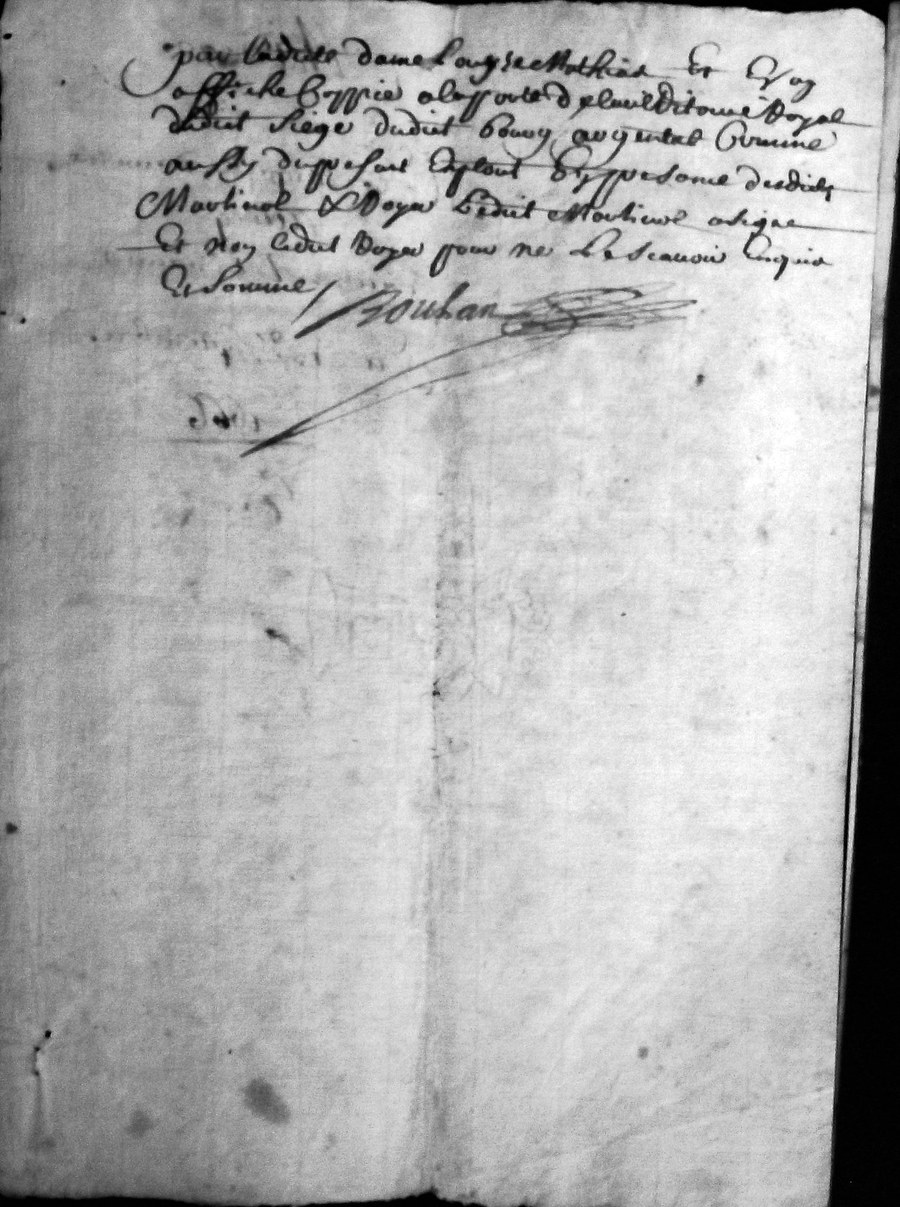 par ladicte dame Louyse Mathias Et Ey
affiche Coppie a la porte de lauditoire Royal
dudict siege dudict bourg argental Comme
aussy du present Exploit En presence desdicts
Martinol & Boyer Ledict Martinol a signe
Et non ledict Boyer pour ne Le scavoir Enquis
Et somme
Rouhan